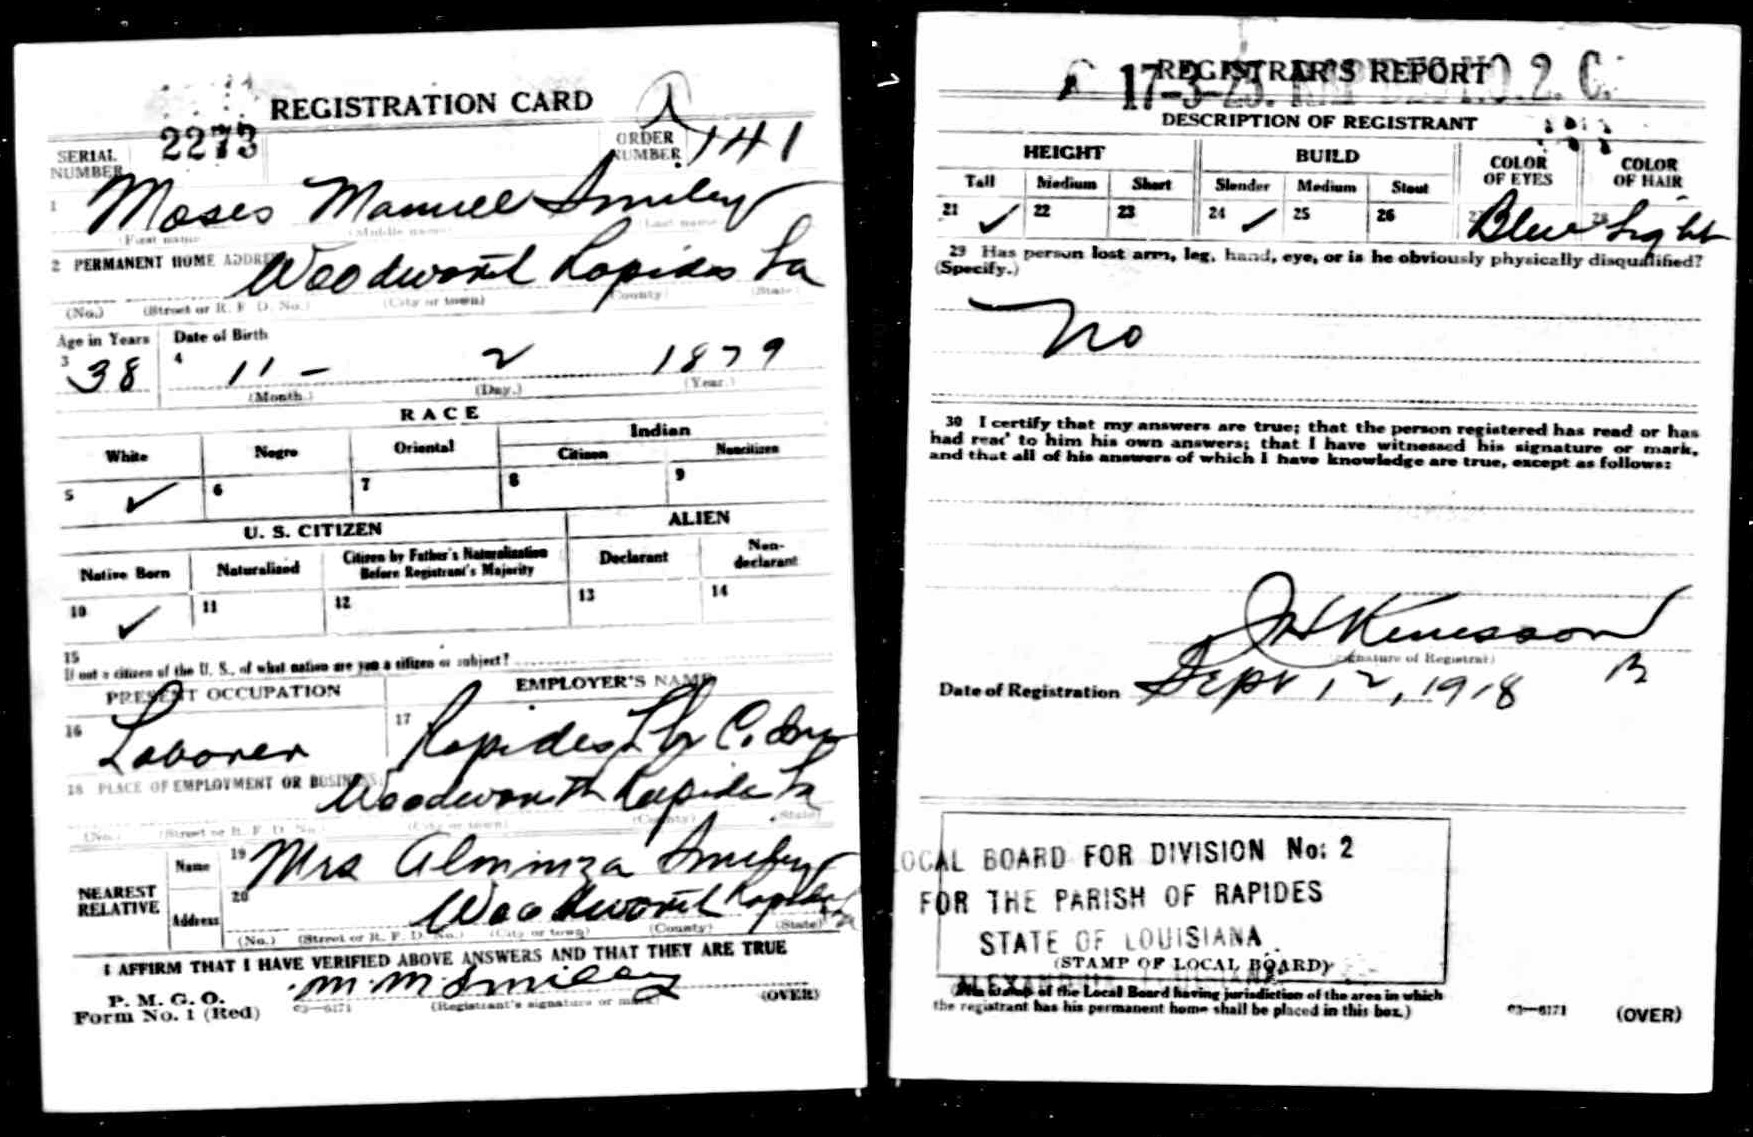 REGISTRATION CARD
SERIAL NUMBER 2273 ORDER NUMBER 141
1 Moses Manuel Smiley
(First name) (Middle name) (Last name)
2 PERMANENT HOME ADDRESS Woodworth Rapides La
(No.) (Street or R. F. D. No.) (City or town) (County) (State)
Age in Years Date of Birth
3 38 4 11 - 2 1879
(Month.) (Day.) (Year.)
RACE
White Negro Oriental Indian
Citizen Noncitizen
5 ✓ 6 7 8 9
U. S. CITIZEN ALIEN
Native Born Naturalized Citizen by Father's Naturalization Before Registrant's Majority Declarant Non-declarant
10 ✓ 11 12 13 14
15
If not a citizen of the U. S., of what nation are you a citizen or subject?
PRESENT OCCUPATION EMPLOYER'S NAME
16 Laborer 17 Rapides Lbr C.
18 PLACE OF EMPLOYMENT OR BUSINESS: Woodworth Rapides La
(No.) (Street or R. F. D. No.) (City or town) (County) (State)
NEAREST RELATIVE
Name 19 Mrs Smiley
Address 20 Woodworth Rapides La
(No.) (Street or R. F. D. No.) (City or town) (County) (State)
I AFFIRM THAT I HAVE VERIFIED ABOVE ANSWERS AND THAT THEY ARE TRUE
P. M. G. O.
Form No. 1 (Red) M M Smiley
03—6171 (Registrant's signature or mark) (OVER)
REGISTRAR'S REPORT
17-3-25. 2. C.
DESCRIPTION OF REGISTRANT
HEIGHT BUILD COLOR OF EYES COLOR OF HAIR
Tall Medium Short Slender Medium Stout
21 ✓ 22 23 24 ✓ 25 26 27 Blue 28 Light
29 Has person lost arm, leg, hand, eye, or is he obviously physically disqualified?
(Specify.)
No
30 I certify that my answers are true; that the person registered has read or has
had read to him his own answers; that I have witnessed his signature or mark,
and that all of his answers of which I have knowledge are true, except as follows:
(Signature of Registrar)
Date of Registration Sept 12, 1918
LOCAL BOARD FOR DIVISION No: 2
FOR THE PARISH OF RAPIDES
STATE OF LOUISIANA.
(STAMP OF LOCAL BOARD)
ALEXANDRIA
(The stamp of the Local Board having jurisdiction of the area in which
the registrant has his permanent home shall be placed in this box.)
03—6171 (OVER)